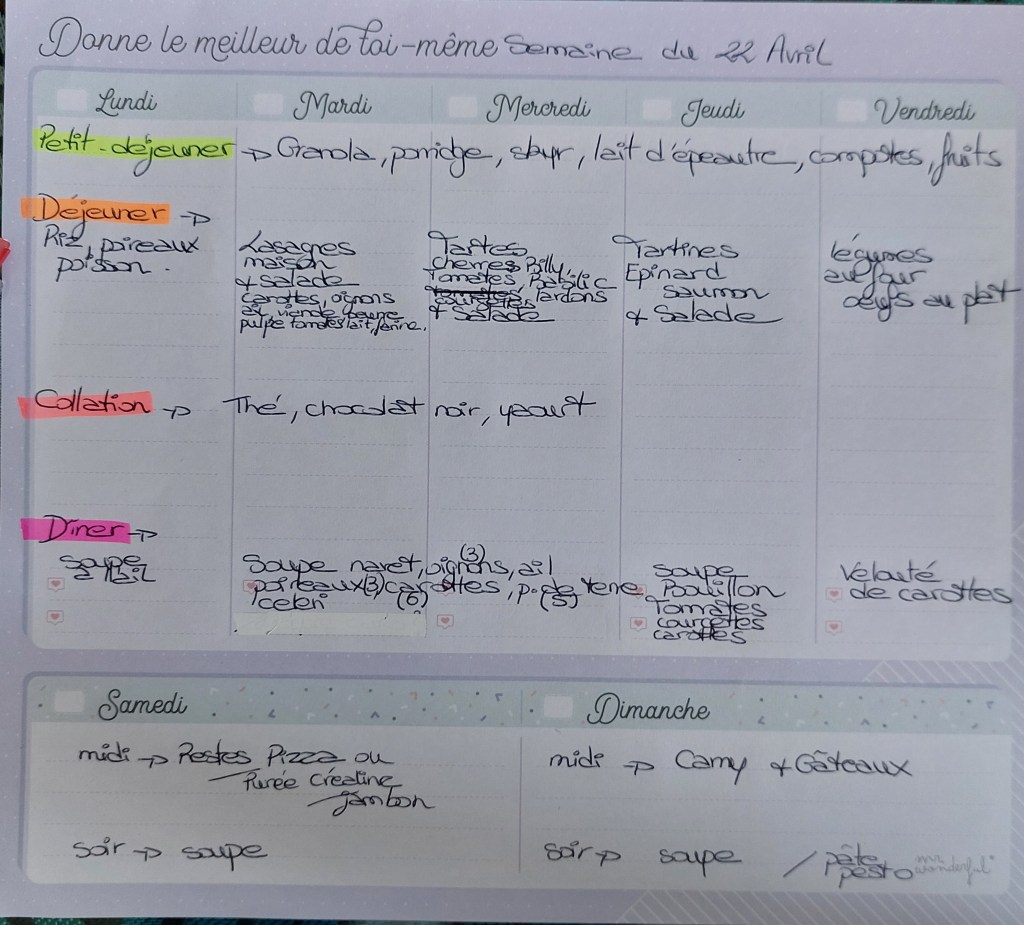 Donne le meilleur de toi-même Semaine du 22 Avril
Lundi Mardi Mercredi Jeudi Vendredi
Petit-déjeuner → Granola, porridge, skyr, lait d'épeautre, compotes, fruits
Déjeuner →
Riz, poireaux
poisson.
Lasagnes
maison
+ salade
carottes, oignons
ail, viande
pulpe tomates lait, farine.
Tartes
Tomates, Basilic
lardons
+ Salade
Tartines
Epinard
saumon
+ Salade
légumes
au four
œufs au plat
Collation → Thé, chocolat noir, yaourt
Dîner →
soupe
Soupe navet, oignons, ail
(3)
poireaux (3) carottes, p. de terre
céleri (6) (5)
soupe
Bouillon
Tomates
courgettes
carottes
Velouté
de carottes
Samedi
midi → Restes Pizza ou
Purée
jambon
soir → soupe
Dimanche
midi → Camy + Gâteaux
soir → soupe / pâte
pesto
mr. wonderful*